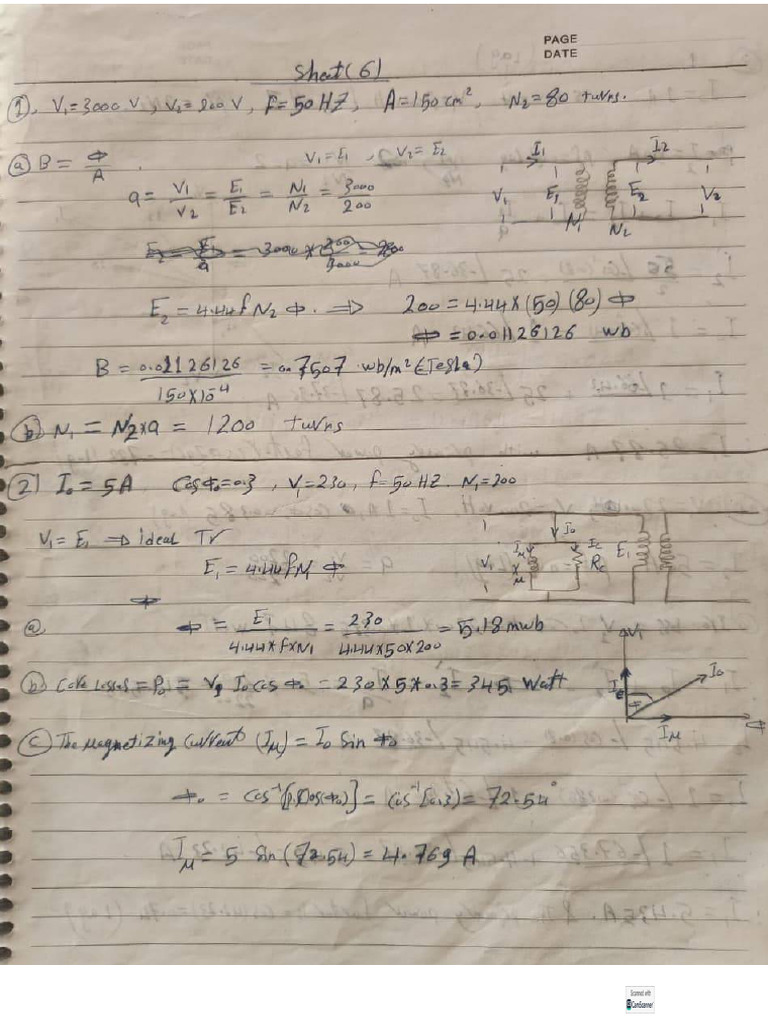 PAGE
DATE
Sheet (6)
1, V₁=3000 V, V₂=200 V, f=50 HZ, A=150 cm², N₂=80 turns.
a B = Φ/A . V₁=E₁ , V₂=E₂
a = V₁/V₂ = E₁/E₂ = N₁/N₂ = 3000/200
I₁ I₂ V₁ E₁ E₂ V₂ N₁ N₂
E₂ = 4.44 f N₂ Φ. ⟹ 200 = 4.44 x (50) (80) Φ
Φ = 0.01126126 wb
B = 0.01126126/150x10⁻⁴ = 0.7507 wb/m² (Tesla)
b N₁ = N₂xa = 1200 turns
2 I₀ = 5A Cosφ₀=0.3 , V₁=230, f=50 HZ. N₁=200
V₁ = E₁ ⟹ ideal Tr
E₁ = 4.44 f N₁ Φ
I₀ V₁ Iμ Xμ Ic Rc E₁
a Φ = E₁/4.44xfxN₁ = 230/4.44x50x200 = 5.18 mwb
b Core Losses = P₀ = V₁ I₀ cos φ₀ = 230x5x0.3 = 345 Watt
V₁ I₀ Φ Iμ
c The Magnetizing Current (Iμ) = I₀ Sin φ₀
φ₀ = cos⁻¹ = cos⁻¹[0.3] = 72.54°
Iμ = 5 Sin (72.54) = 4.769 A
Scanned with
CamScanner